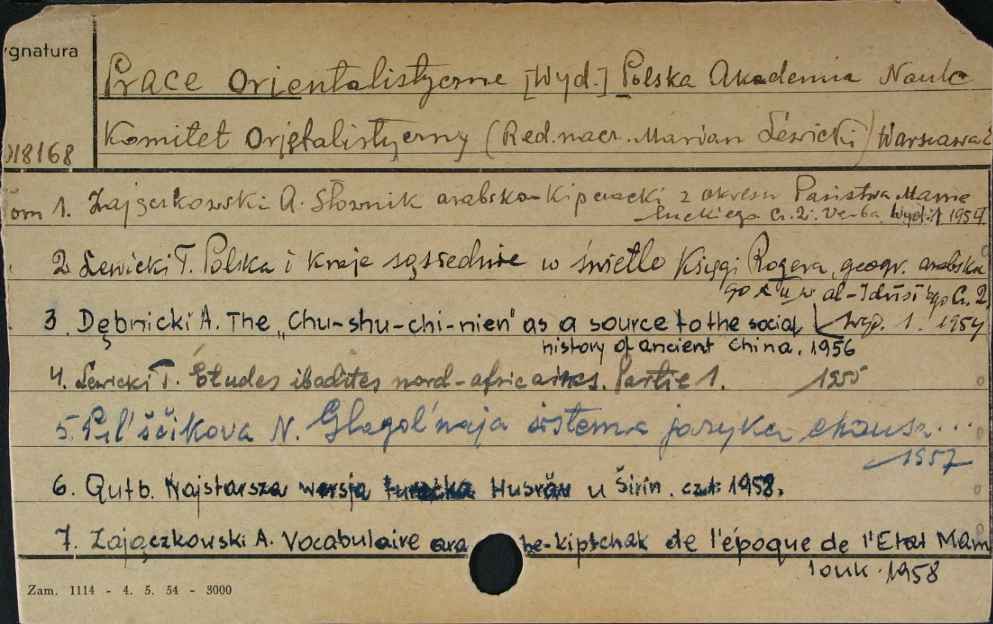 ygnatura
Prace Orientalistyczne [Wyd.] Polska Akademia Nauk
Komitet Orjętalistyczny (Red. nacz. Marian Lewicki) Warszawa
18168
om 1. Zajączkowski A. Słownik arabsko-kipczacki z okresu Państwa Mame
luckiego Cz. 2. Verba Wyd. 1 1954
2 Lewicki T. Polska i kraje sąsiednie w świetle Księgi Rogera, geogr. arabskie
go z w. al-Idrisi'ego Cz. 2
3. Dębnicki A. The "Chu-shu-chi-nien" as a source to the social Wyd. 1. 1954
history of ancient China. 1956
4. Lewicki T. Études ibadites nord-africaines. Partie 1. 1955
5. Pil'ščikova N. Glagol'naja sistema jazyka chausa...
1957
6. Qutb. Najstarsza wersja turecka Husrāv u Širin. cz. 1 1958.
7. Zajączkowski A. Vocabulaire ara be-kiptchak de l'époque de l'Etat Mam
louk. 1958
Zam. 1114 - 4. 5. 54 - 3000